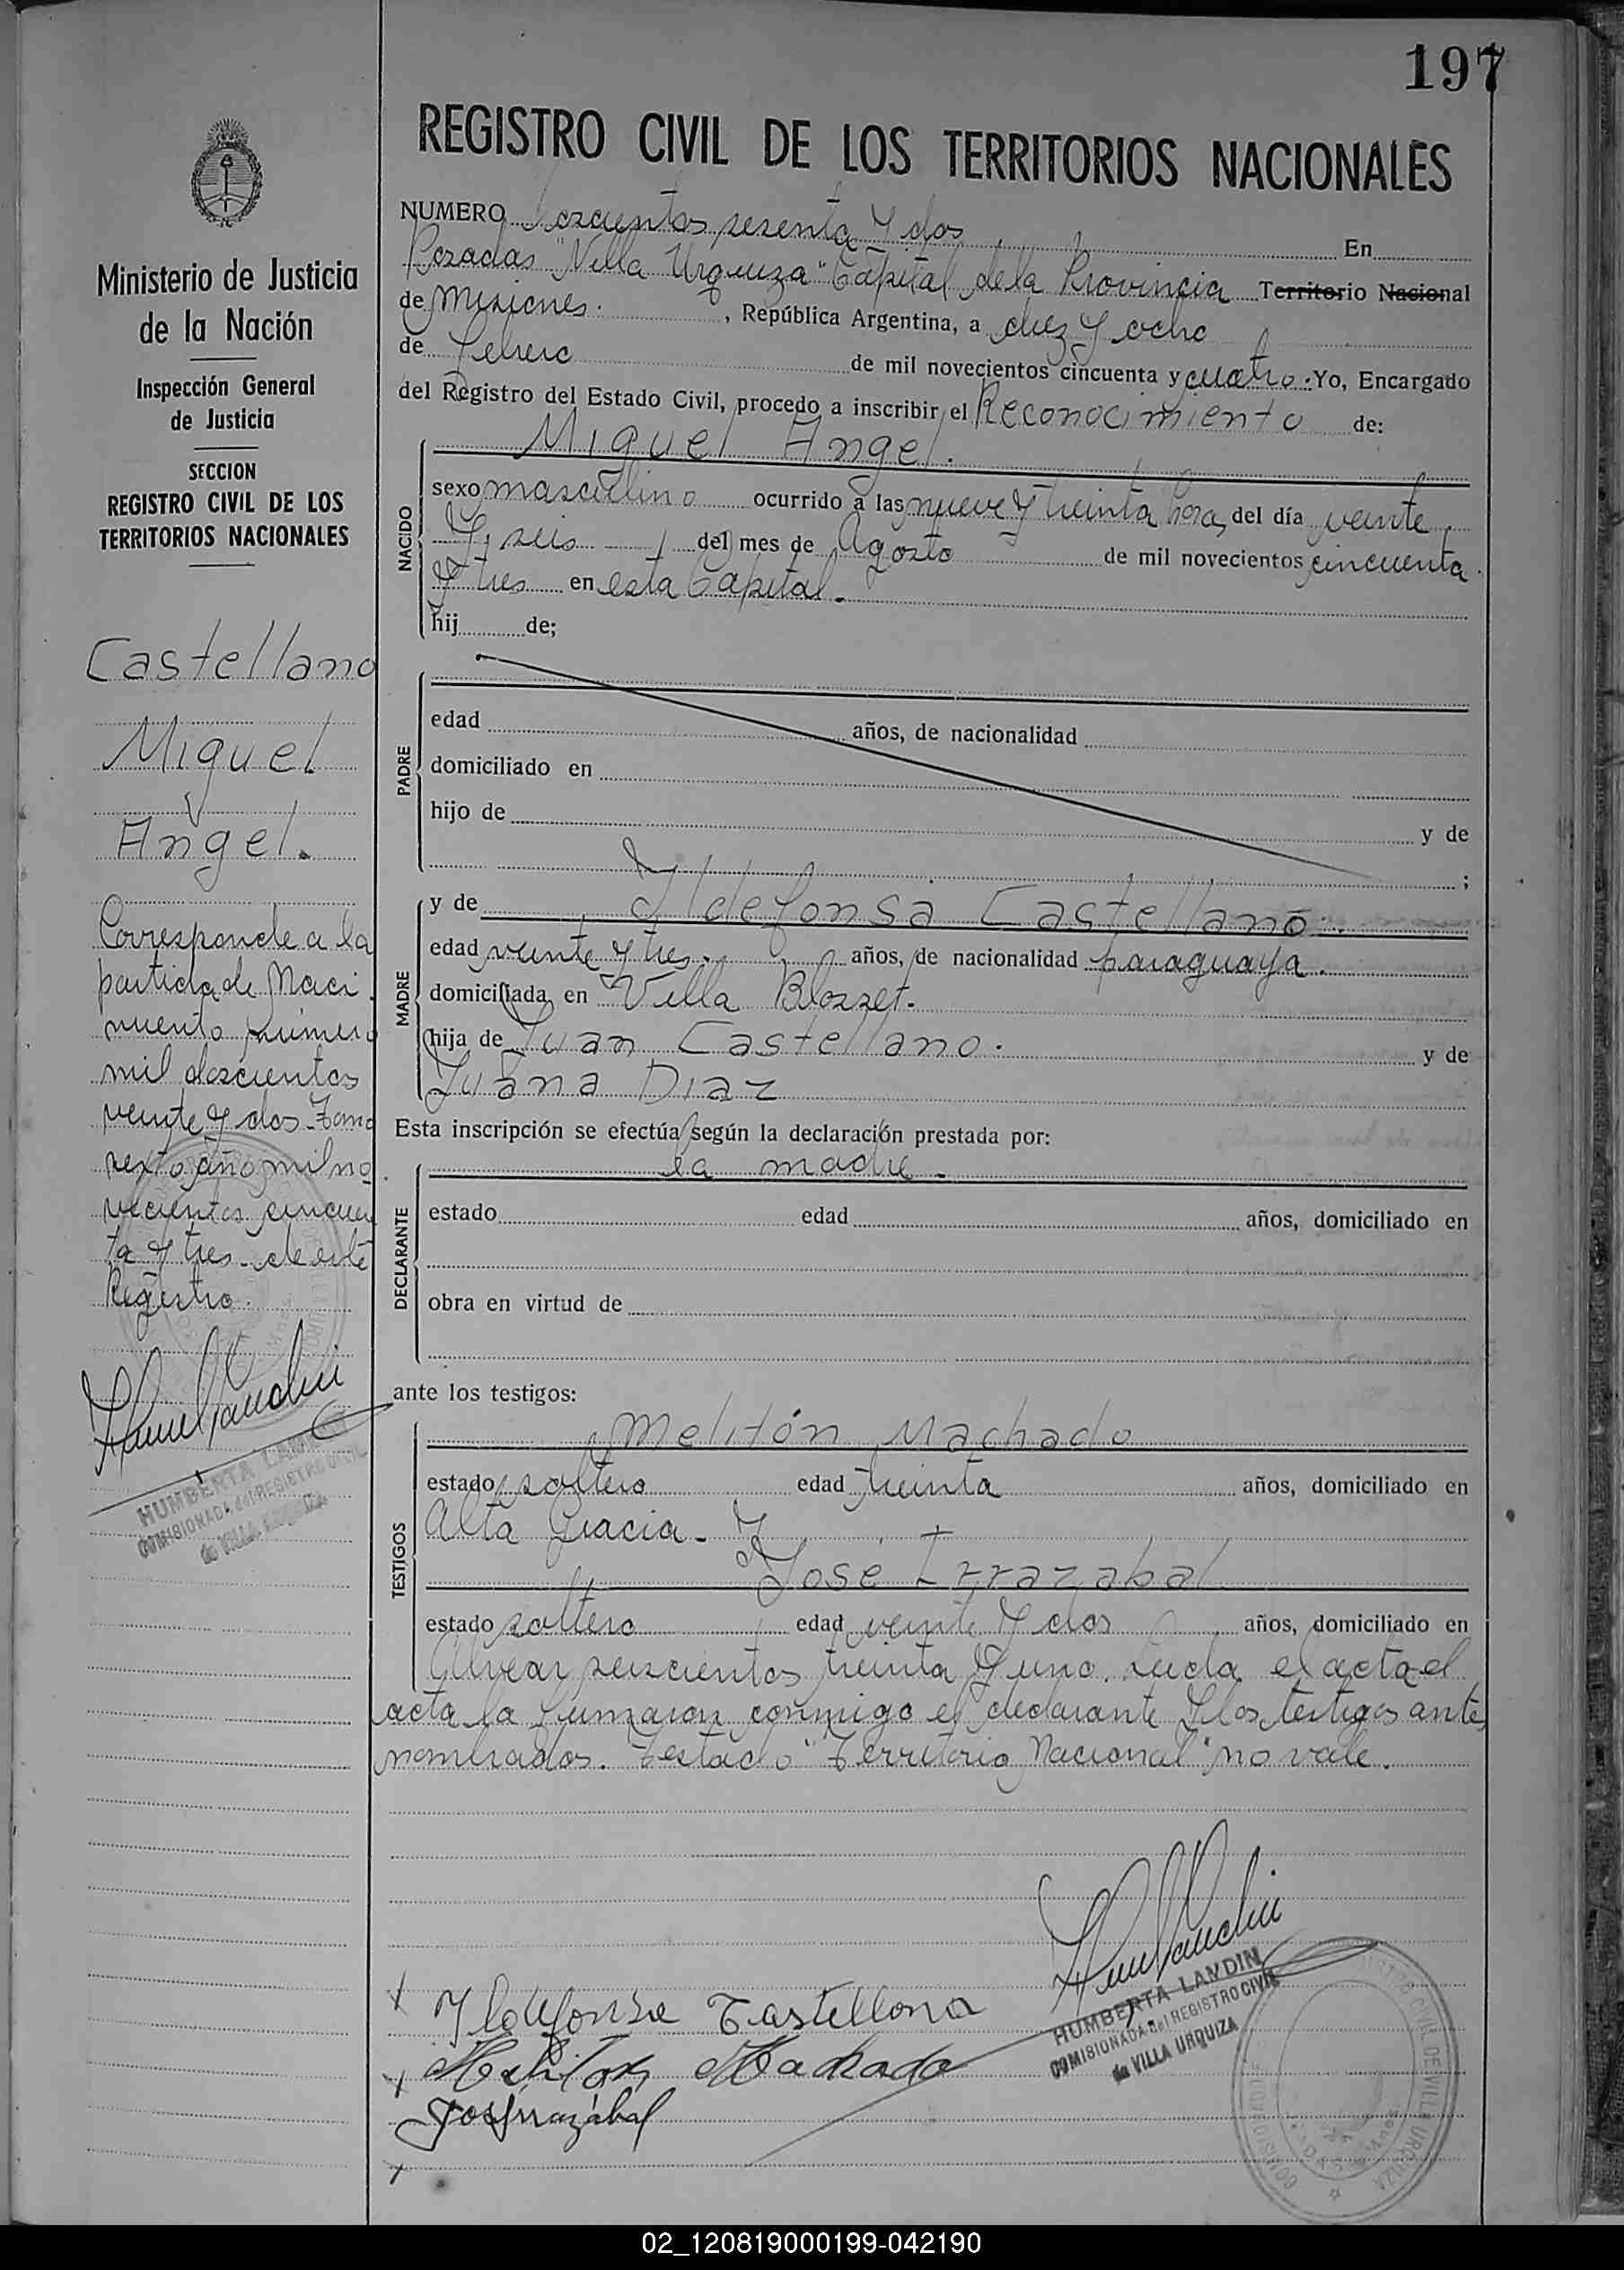 197
REGISTRO CIVIL DE LOS TERRITORIOS NACIONALES
Ministerio de Justicia
de la Nación
Inspección General
de Justicia
SECCION
REGISTRO CIVIL DE LOS
TERRITORIOS NACIONALES
Castellano
Miguel
Angel.
Corresponde a la
partida de Naci
miento número
mil doscientos
veinte y dos - Tomo
sexto año mil no
vecientos cincuen
ta y tres - de este
Registro.
HUMBERTA LANDIN
COMISIONADA del REGISTRO CIVIL
de VILLA URQUIZA
NUMERO doscientos sesenta y dos En
Posadas "Villa Urquiza" Capital de la Provincia Territorio Nacional
de Misiones. , República Argentina, a diez y ocho
de Febrero de mil novecientos cincuenta y cuatro. Yo, Encargado
del Registro del Estado Civil, procedo a inscribir el Reconocimiento de:
NACIDO
Miguel Angel.
sexo masculino ocurrido a las nueve y treinta horas, del día veinte
y seis del mes de Agosto de mil novecientos cincuenta
y tres en esta Capital.
hij de;
PADRE
edad años, de nacionalidad
domiciliado en
hijo de y de
;
MADRE
y de Ildefonsa Castellano.
edad veinte y tres. años, de nacionalidad paraguaya.
domiciliada en Villa Blosset.
hija de Juan Castellano. y de
Juana Diaz
Esta inscripción se efectúa según la declaración prestada por:
DECLARANTE
la madre.
estado edad años, domiciliado en
obra en virtud de
ante los testigos:
TESTIGOS
Melitón Machado
estado soltero edad treinta años, domiciliado en
Alta Gracia - y
José Irrazabal
estado soltero edad veinte y dos años, domiciliado en
Alvear seiscientos treinta y uno. Leida el acta el
acta la firmaron conmigo el declarante y los testigos antes
nombrados. Testado "Territorio Nacional" no vale.
HUMBERTA LANDIN
COMISIONADA del REGISTRO CIVIL
de VILLA URQUIZA
Yldefonsa Castellano
Meliton Machado
José Irrazábal
02_120819000199-042190